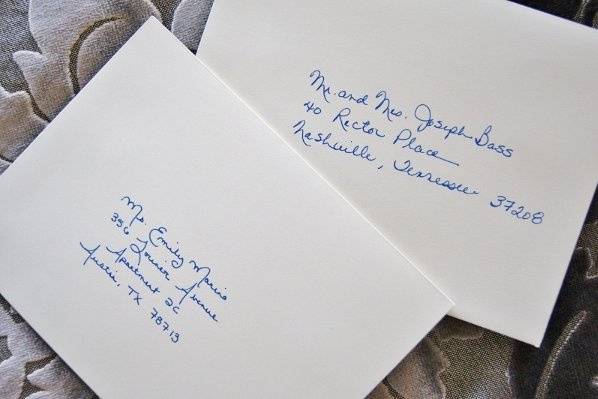 Mr. and Mrs. Joseph Bass
40 Rector Place
Nashville, Tennessee 37208
Ms. Emily Marris
356 Avenue
Apartment 2C
Austin, TX 78713